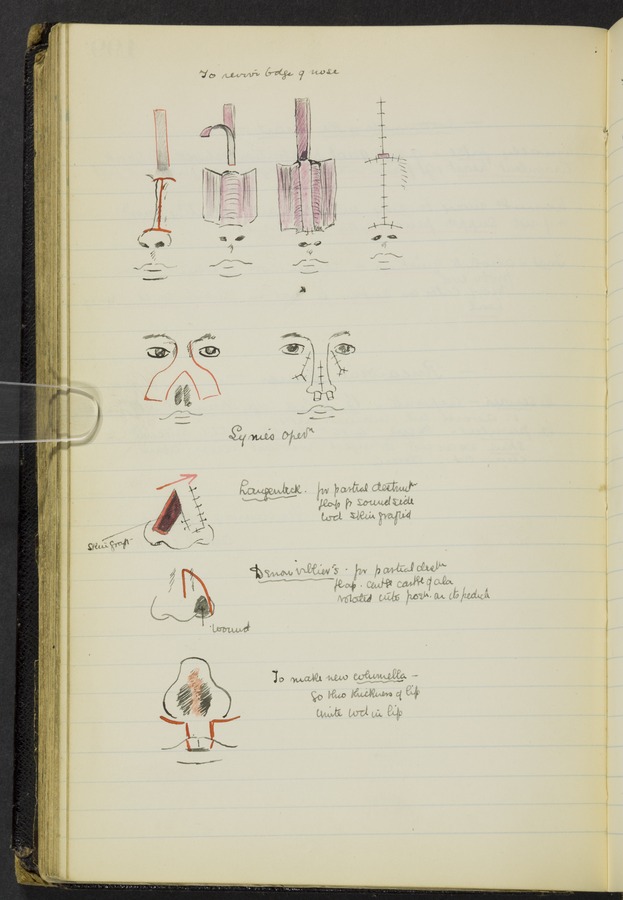 To revive bdge of nose
Syme's Opern
Langenbeck. for partial destruct
flap fr sound side
wd skin grafted
Skin graft
Denonvillier's - for partial destn
flap - contg cartge of ala
rotated into posn. on its pedicle
wound
To make new columella -
Go thro thickness of lip
Unite wd in lip